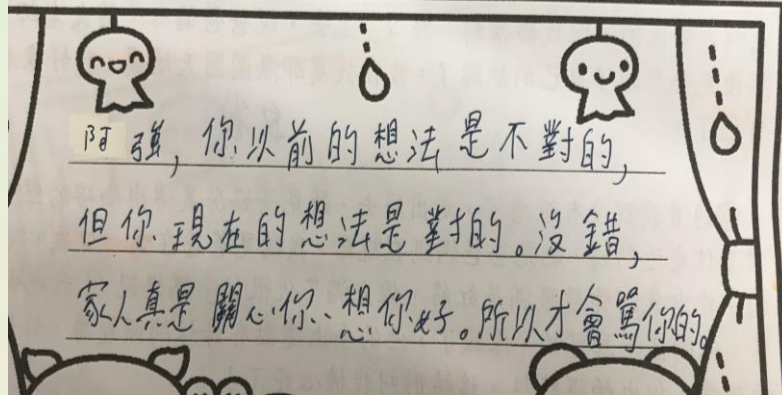 阿強，你以前的想法是不對的，
但你現在的想法是對的。沒錯，
家人真是關心你、想你好。所以才會罵你的。